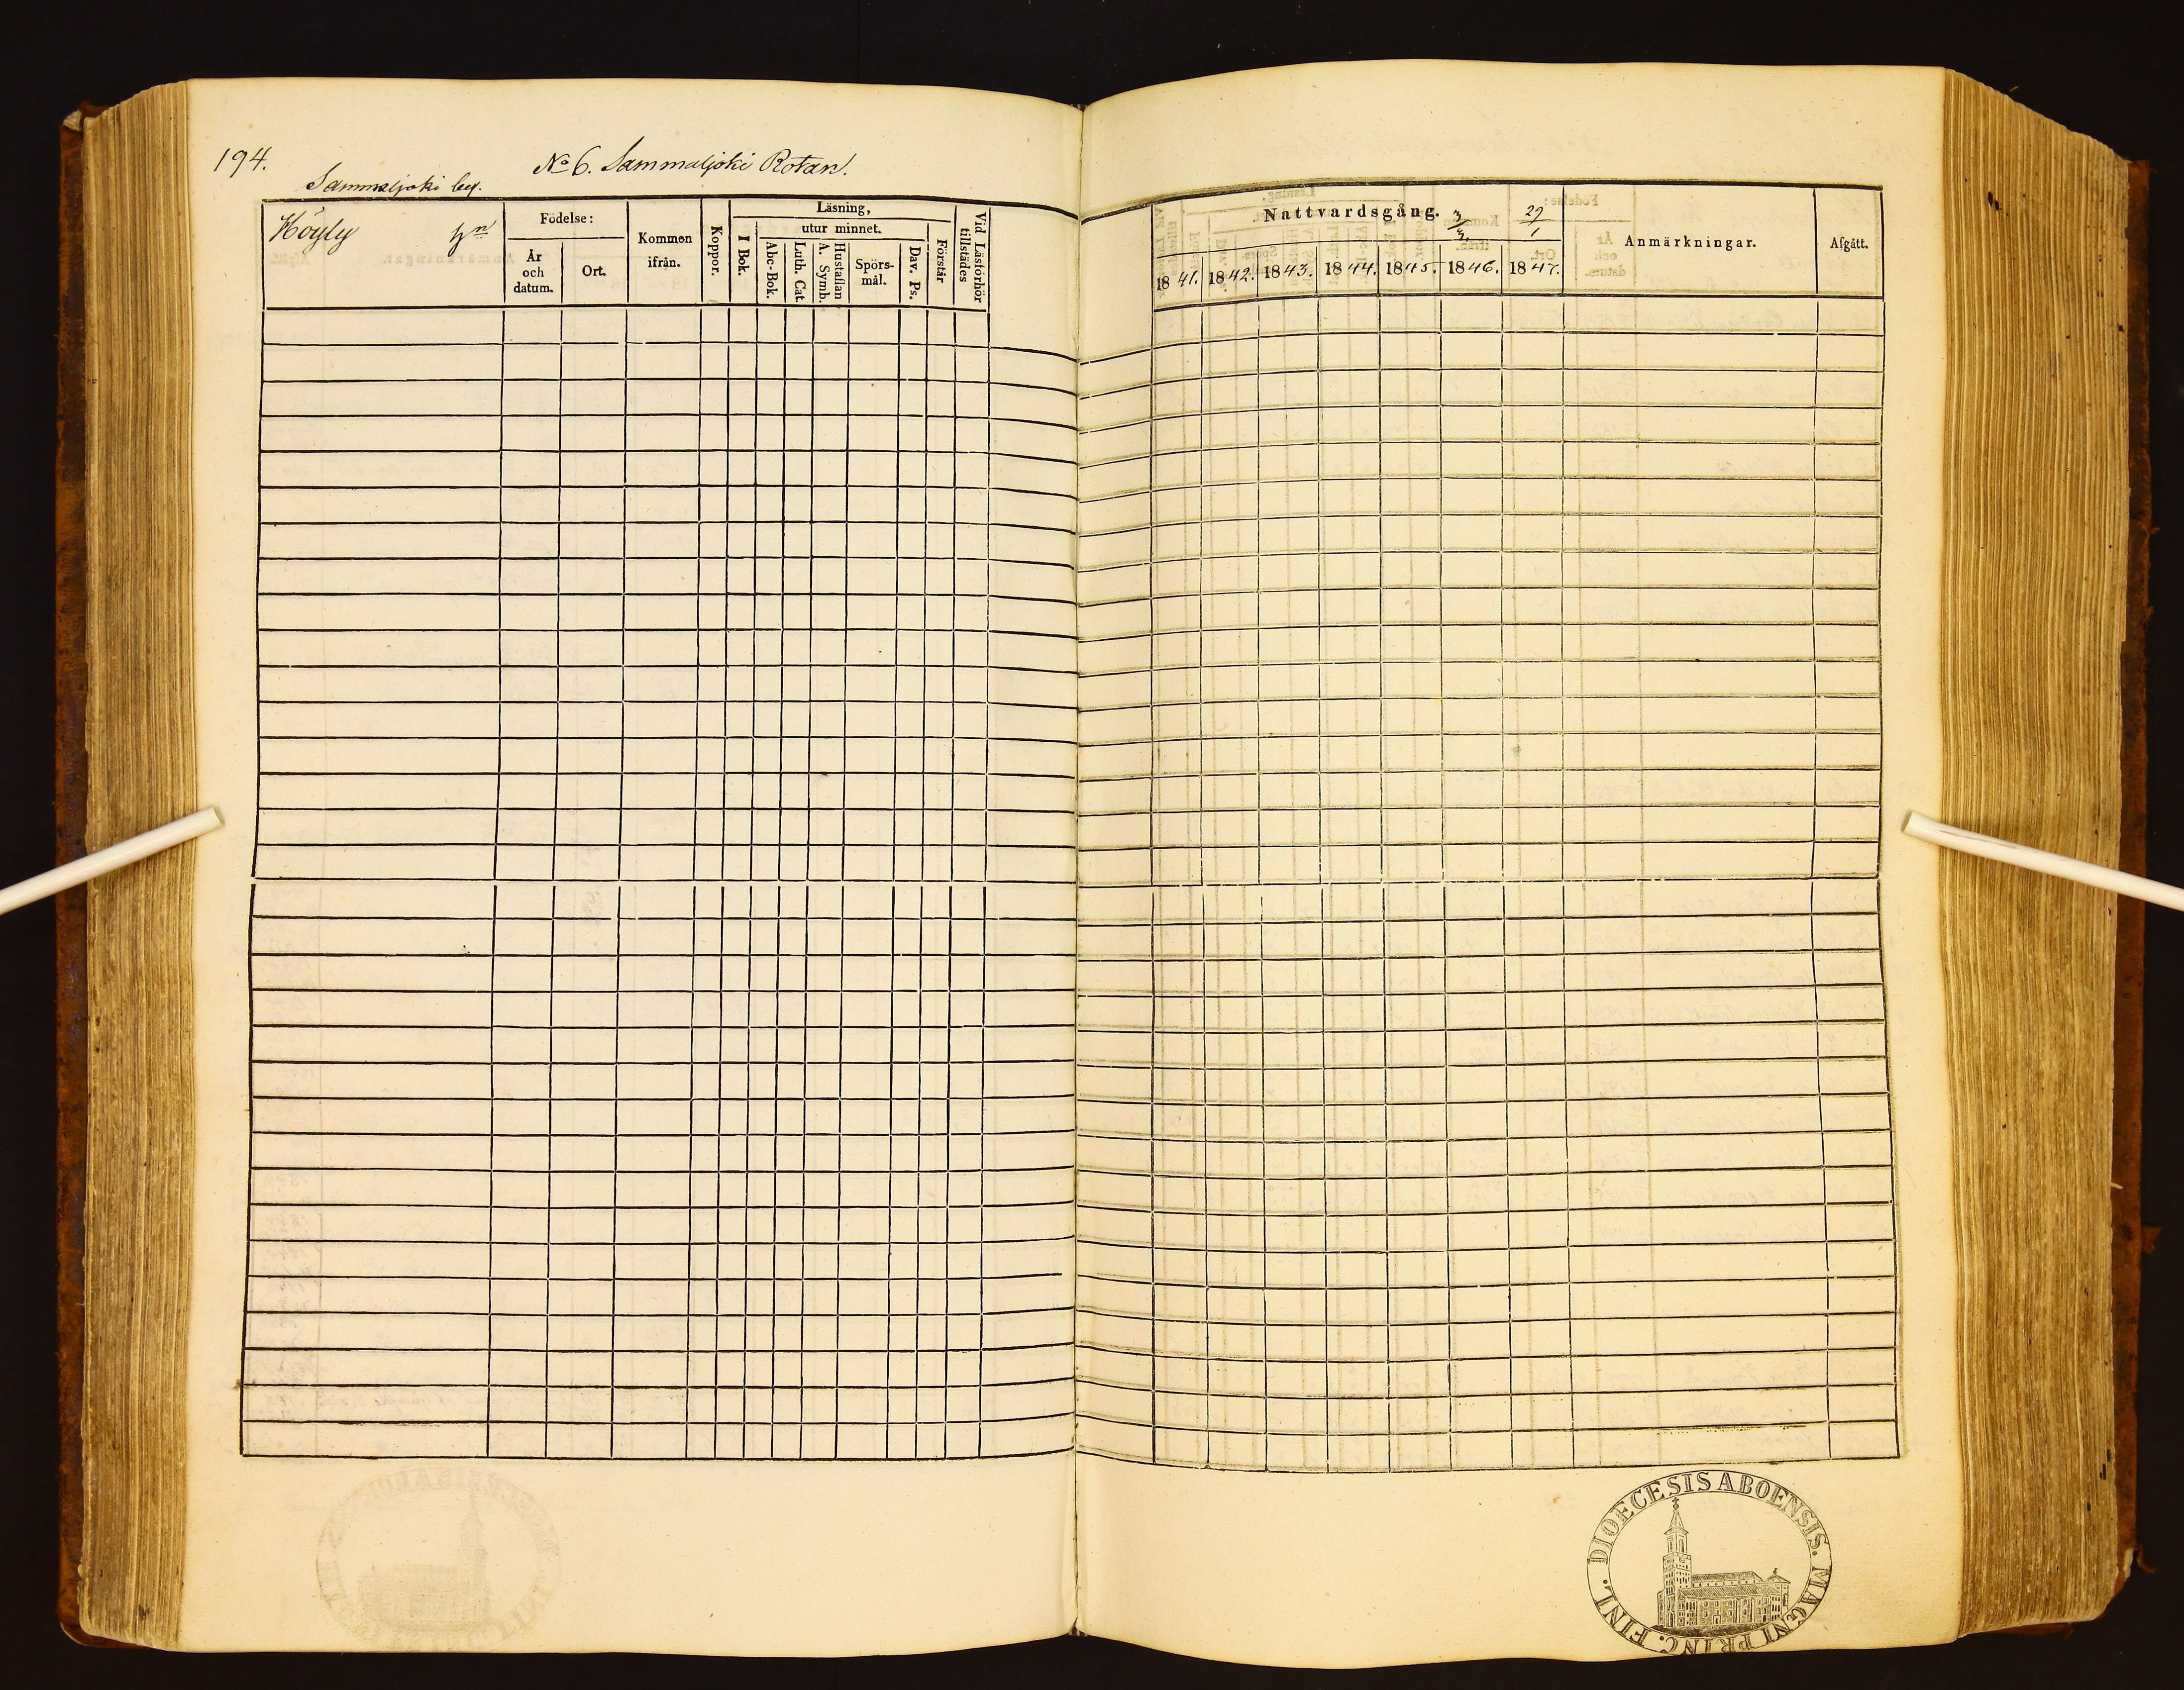 194.
No 6. Sammaljoki Rotan.
Sammaljoki by.
Höyly
Födelse:
År och datum.
Ort.
Kommen ifrån.
Koppor.
Läsning,
I Bok.
utur minnet.
Abc-Bok.
Luth. Cat.
Hustaflan A. Symb.
Spörs-mål.
Dav. Ps.
Förstår
Vid Läsförhör tillstädes
Nattvardsgång.
3/3.
29/1
1841. 1842. 1843. 1844. 1845. 1846. 1847.
Anmärkningar.
Afgått.
DIOECESIS ABOENSIS. MAGNI PRINC. FINL.